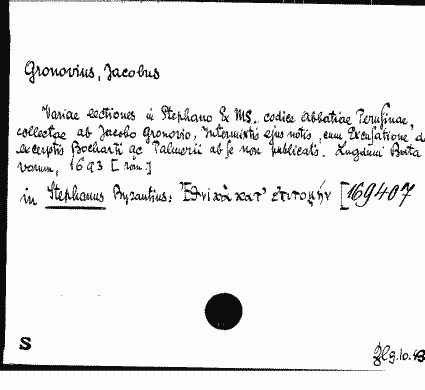 Gronovius, Jacobus
Variae lectiones in Stephano Ex MS. codice Abbatiae Perusinae,
collectae ab Jacobo Gronovio, Intermixtis ejus notis, cum Excusatione de
excerptis Bocharti ac Palmerii ab se non publicatis. Lugduni Bata
vorum, 1693 [röm.]
in Stephanus Byzantius: Ἐθνικὰ κατ' ἐπιτομήν [169407
S
9.10.43